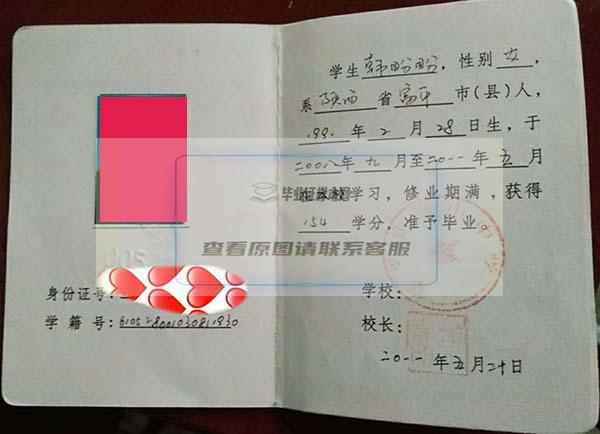 身份证号:
学籍号: 610528001030811930
学生 韩盼盼，性别 女，
系 陕西 省 富平 市(县)人，
1991年 2 月 28 日生，于
二00八年 九 月至二0一一年 五 月
在本校学习，修业期满，获得
154 学分，准予毕业。
学校:
校长:
二0一一年五月二十日
毕业证样本网
查看原图请联系客服